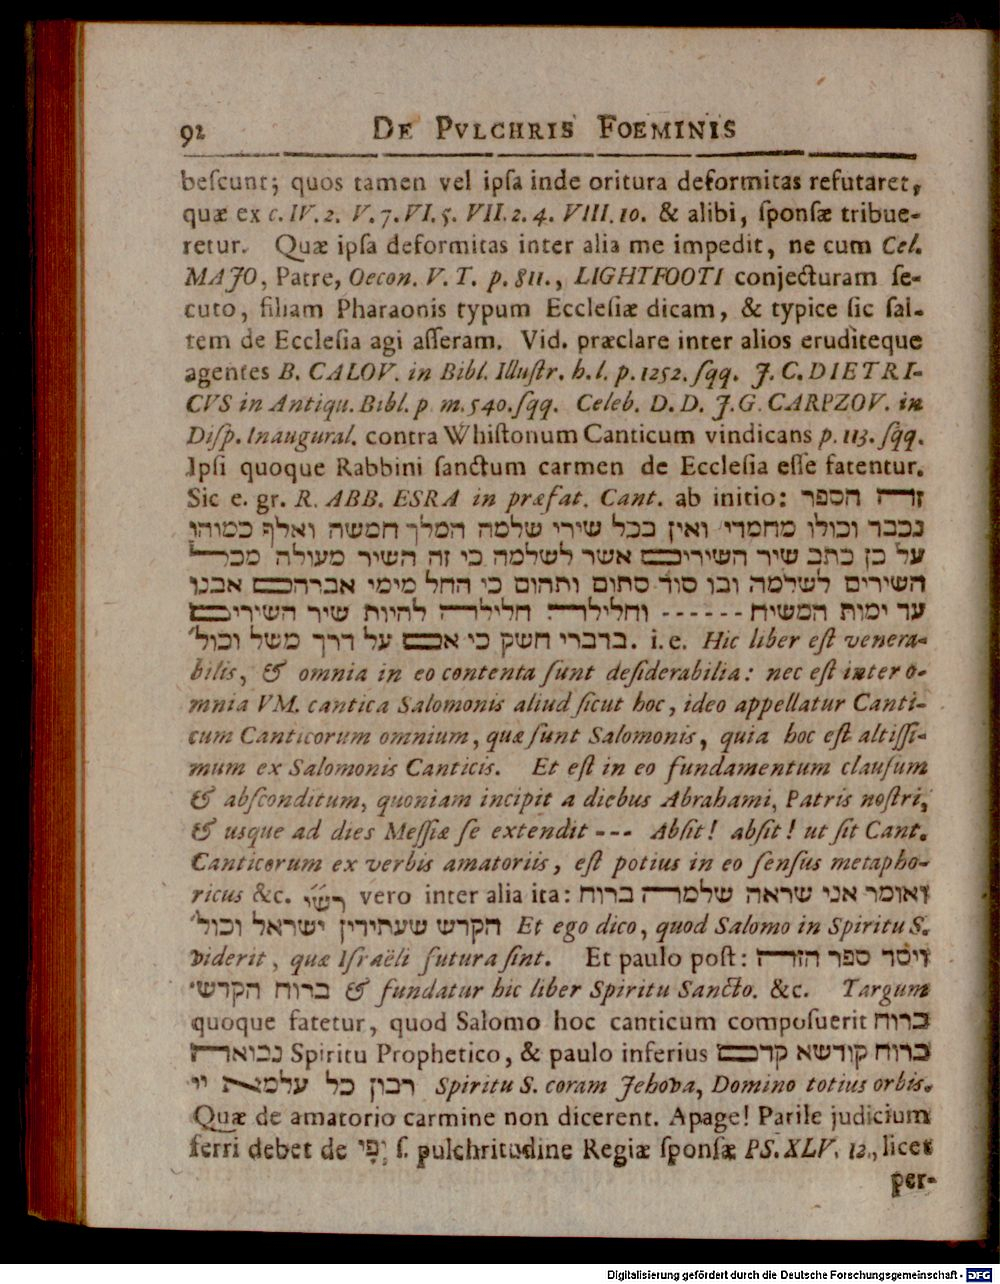 92 DE PVLCHRIS FOEMINIS
beſcunt; quos tamen vel ipſa inde oritura deformitas refutaret,
quæ ex c. IV. 2. V. 7. VI. 5. VII. 2. 4. VIII. 10. & alibi, ſponſæ tribue-
retur. Quæ ipſa deformitas inter alia me impedit, ne cum Cel.
MAJO, Patre, Oecon. V. T. p. 811., LIGHTFOOTI conjecturam ſe-
cuto, filiam Pharaonis typum Eccleſiæ dicam, & typice ſic ſal-
tem de Eccleſia agi aſſeram. Vid. præclare inter alios eruditeque
agentes B. CALOV. in Bibl. Illuſtr. h. l. p. 1252. ſqq. J. C. DIETRI-
CVS in Antiqu. Bibl. p. m. 540. ſqq. Celeb. D. D. J. G. CARPZOV. in
Diſp. Inaugural. contra Whiſtonum Canticum vindicans p. 113. ſqq.
Ipſi quoque Rabbini ſanctum carmen de Eccleſia eſſe fatentur.
Sic e. gr. R. ABB. ESRA in præfat. Cant. ab initio: זה הספר
נכבד וכולו מחמדי ואין בכל שירי שלמה המלך חמשה ואלף כמוהו
על כן כתב שיר השירים אשר לשלמה כי זה השיר מעולה מכל
השירים לשלמה ובו סוד סתום ותהום כי החל מימי אברהם אבנו
עד ימות המשיח ------ וחלילה חלילה להיות שיר השירים
בדברי חשק כי אם על דרך משל וכול׳. i. e. Hic liber eſt venera-
bilis, & omnia in eo contenta ſunt deſiderabilia: nec eſt inter o-
mnia VM. cantica Salomonis aliud ſicut hoc, ideo appellatur Canti-
cum Canticorum omnium, quæ ſunt Salomonis, quia hoc eſt altiſſi-
mum ex Salomonis Canticis. Et eſt in eo fundamentum clauſum
& abſconditum, quoniam incipit a diebus Abrahami, Patris noſtri,
& usque ad dies Meſſiæ ſe extendit --- Abſit! abſit! ut ſit Cant.
Canticorum ex verbis amatoriis, eſt potius in eo ſenſus metapho-
ricus &c. רש״י vero inter alia ita: ואומר אני שראה שלמה ברוח
הקרש שעתידין ישראל וכול׳ Et ego dico, quod Salomo in Spiritu S.
viderit, quæ Iſraëli futura ſint. Et paulo poſt: ויסד ספר הזה
ברוח הקדש׳ & fundatur hic liber Spiritu Sancto. &c. Targum
quoque fatetur, quod Salomo hoc canticum compoſuerit ברוח
נבואה Spiritu Prophetico, & paulo inferius ברוח קודשא קדם
רבון כל עלמא יי Spiritu S. coram Jehova, Domino totius orbis.
Quæ de amatorio carmine non dicerent. Apage! Parile judicium
ferri debet de יֳפִי ſ. pulchritudine Regiæ ſponſæ PS. XLV. 12., licet
per-
Digitalisierung gefördert durch die Deutsche Forschungsgemeinschaft - DFG